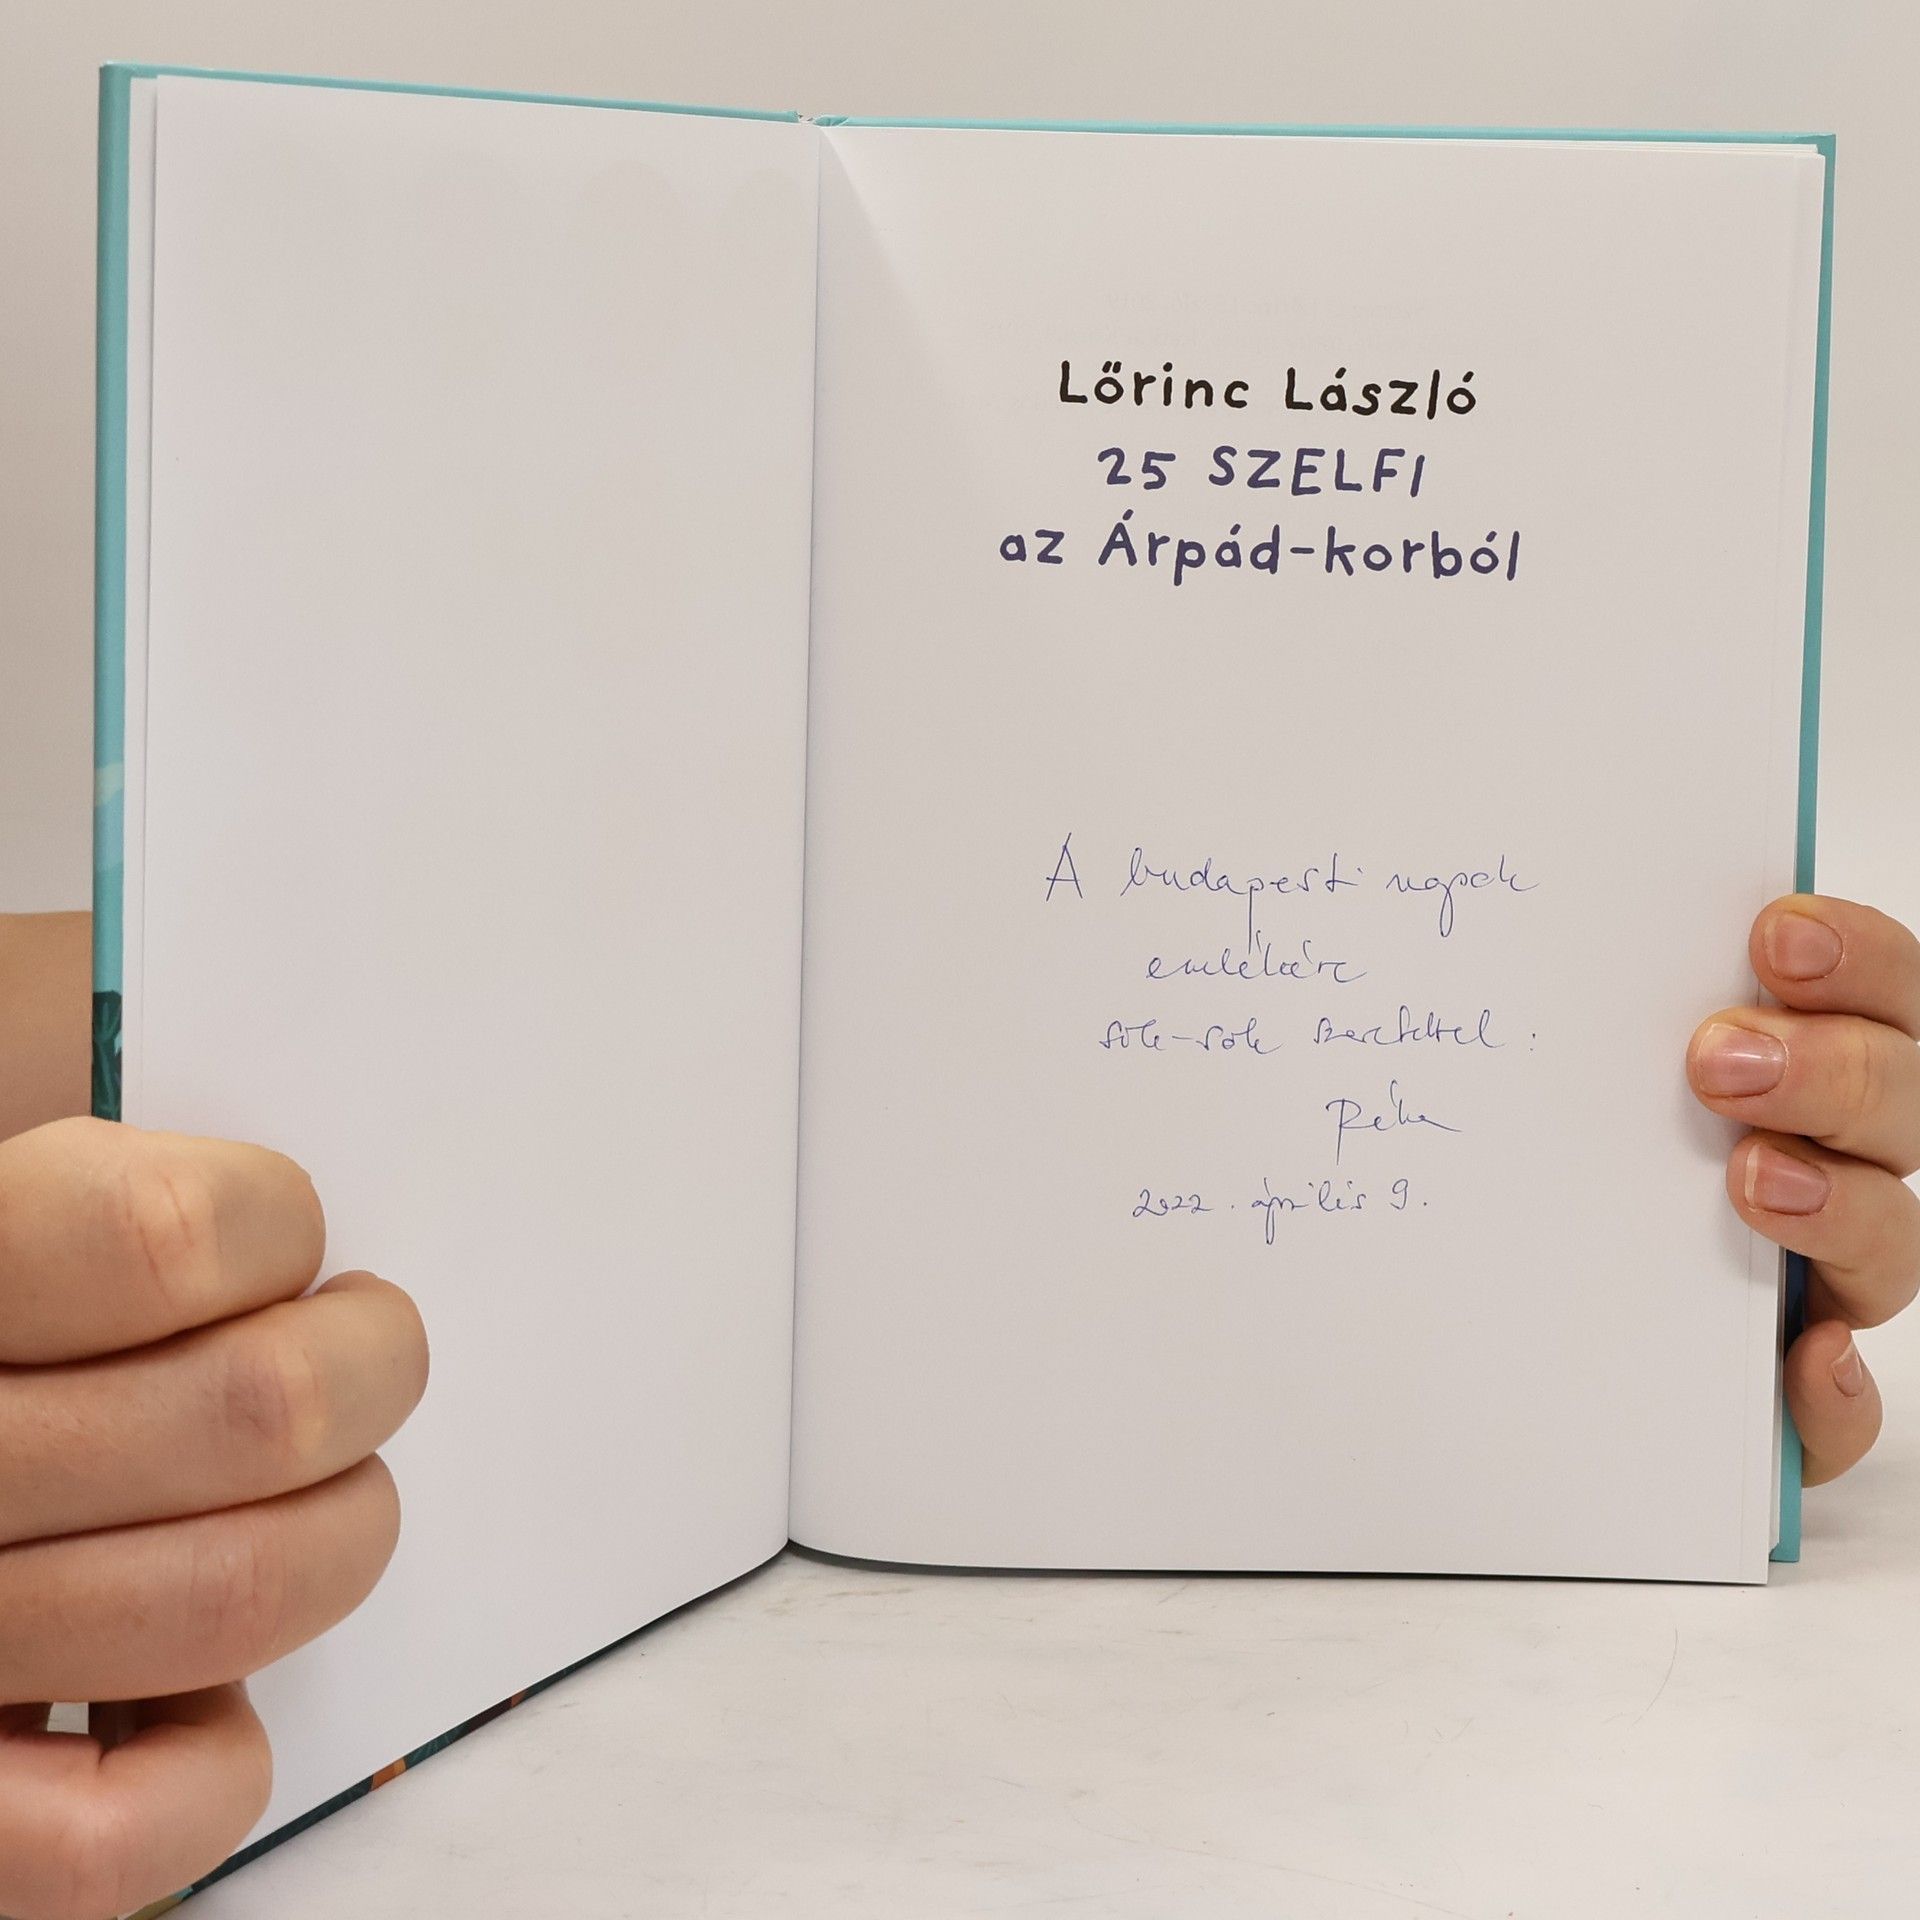 Lőrinc László
25 SZELFI
az Árpád-korból
A budapesti napok
emlékére
sok-sok szeretettel:
Réka
2022. április 9.